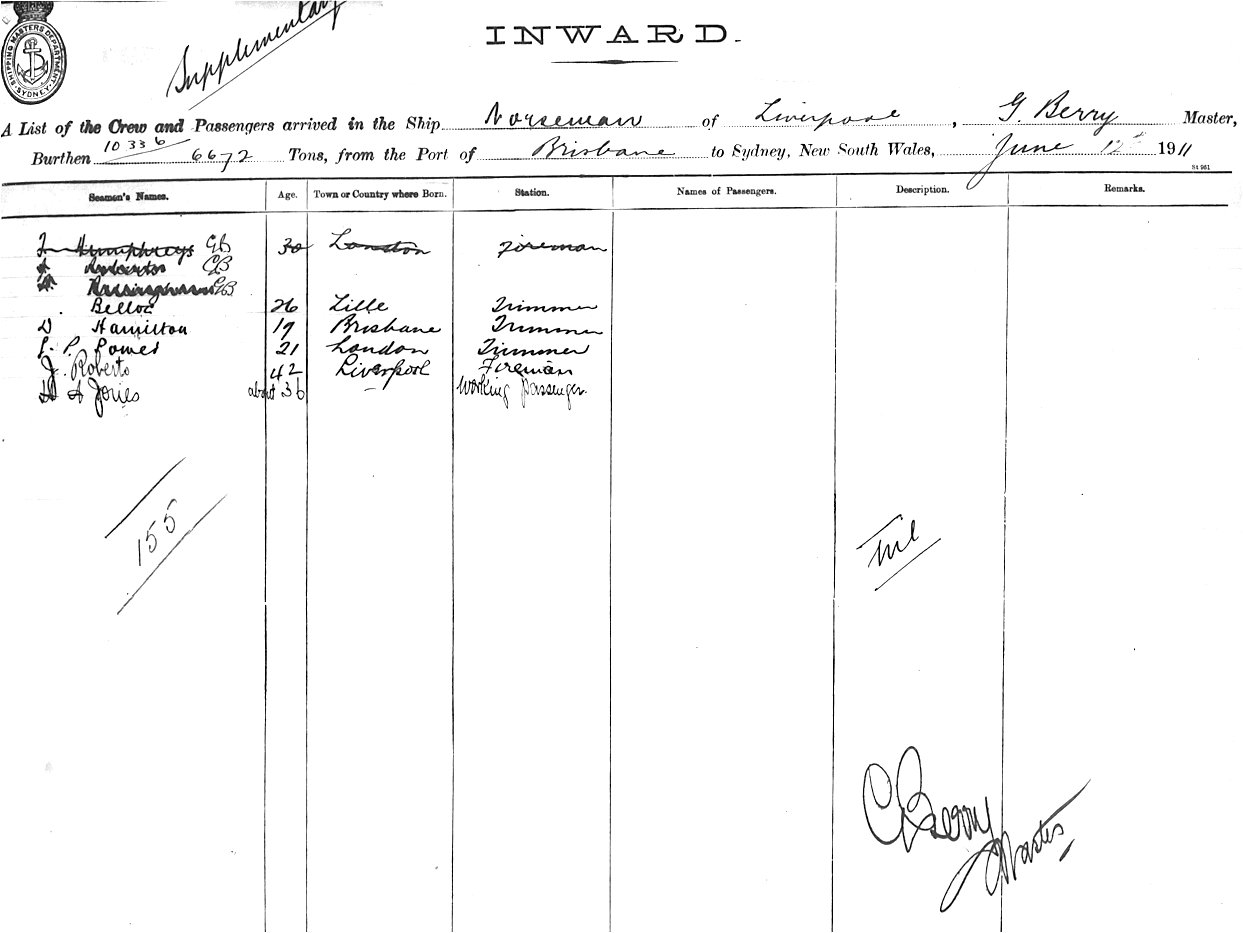 SHIPPING MASTERS DEPARTMENT. SYDNEY.
Supplementary
INWARD.
A List of the Crew and Passengers arrived in the Ship Norseman of Liverpool, G. Berry Master,
10336
Burthen 6672 Tons, from the Port of Brisbane to Sydney, New South Wales, June 12th 1911
St 961
Seamen's Names. Age. Town or Country where Born. Station. Names of Passengers. Description. Remarks.
Humphreys GB 30 London Fireman
GB
GB
Belloc 26 Lille Trimmer
D Hamilton 19 Brisbane Trimmer
P. Power 21 London Trimmer
J. Roberts 42 Liverpool Fireman
A Jones about 36 Working passenger.
155
GBerry
Master